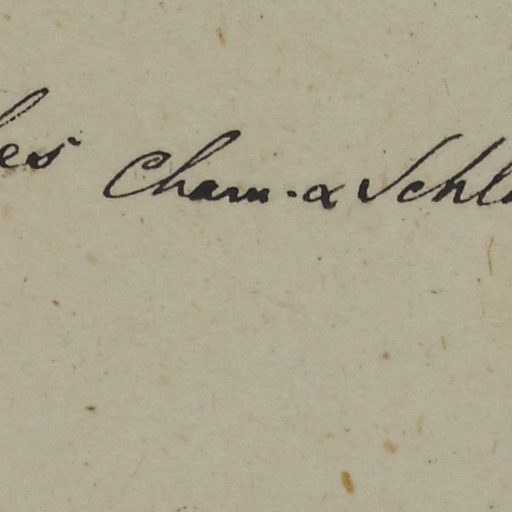 es Cham. & Schl